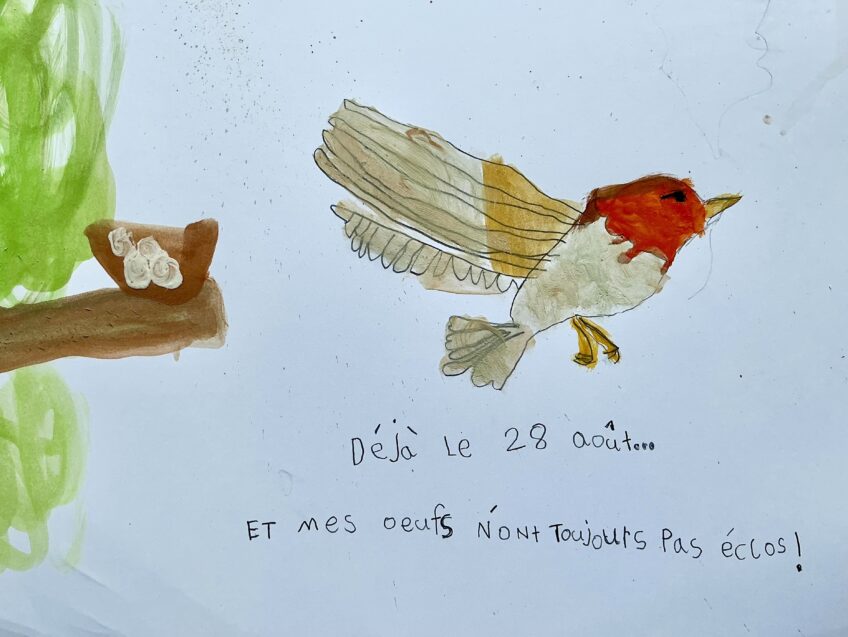 Déjà le 28 août...
ET mes oeufs N'ONT Toujours Pas éclos!